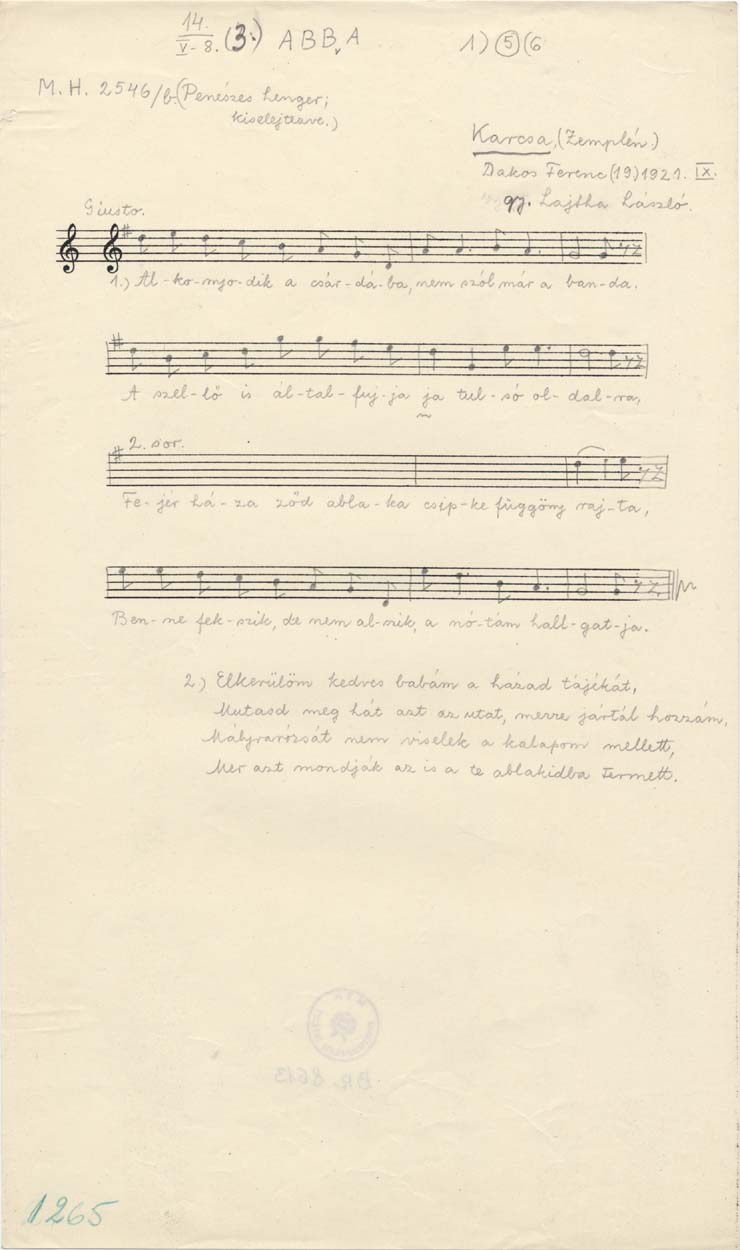 14.
V-8. (3.) A B Bv A 1) (5) (6
M. H. 2546/b (Penészes henger;
kiselejtezve.)
Karcsa, (Zemplén.)
Dakos Ferenc (19) 1921. IX.
gy. Lajtha László.
Giusto.
1.) Al-ko-nyo-dik a csár-dá-ba, nem szól már a ban-da.
A szel-lő is ál-tal-fuj-ja ja tul-só ol-dal-ra,
2. sor.
Fe-jér há-za ződ abla-ka csip-ke függöny raj-ta,
Ben-ne fek-szik, de nem al-szik, a nó-tám hall-gat-ja.
2) Elkerülöm kedves babám a házad tájékát,
Mutasd meg hát azt az utat, merre jártál hozzám,
Mályvarózsát nem viselek a kalapom mellett,
Mer azt mondják az is a te ablakidba termett.
BR. 8613
1265